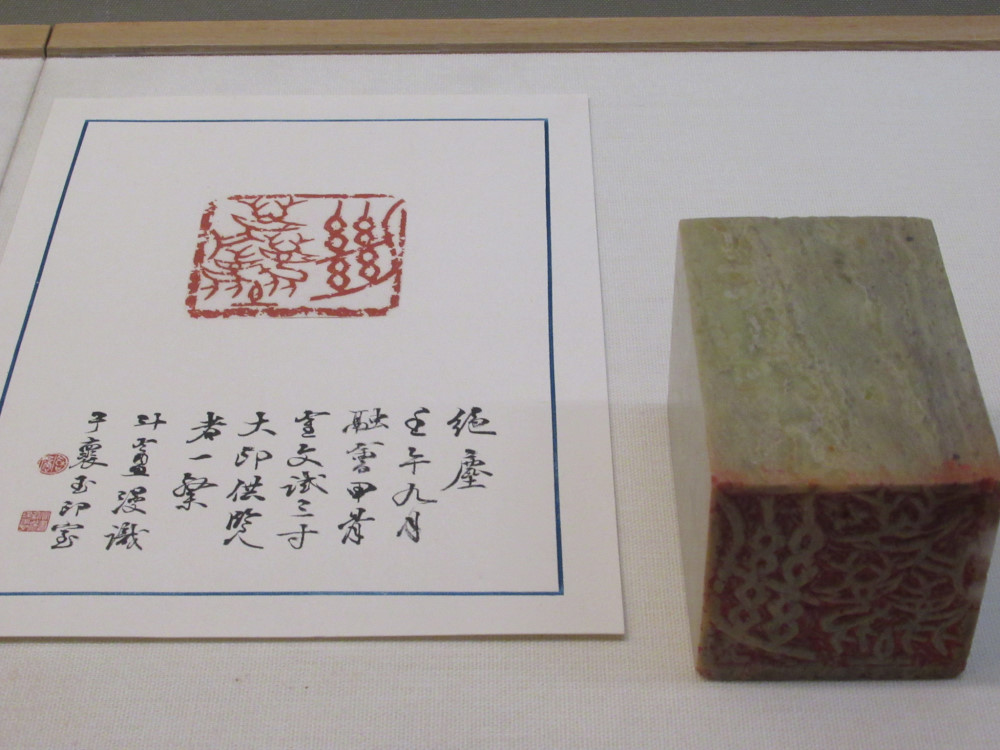 絕塵
壬午九月
融會甲骨
文試三寸
大印供覽
者一粲
斗盦漫識
于襄玉印室